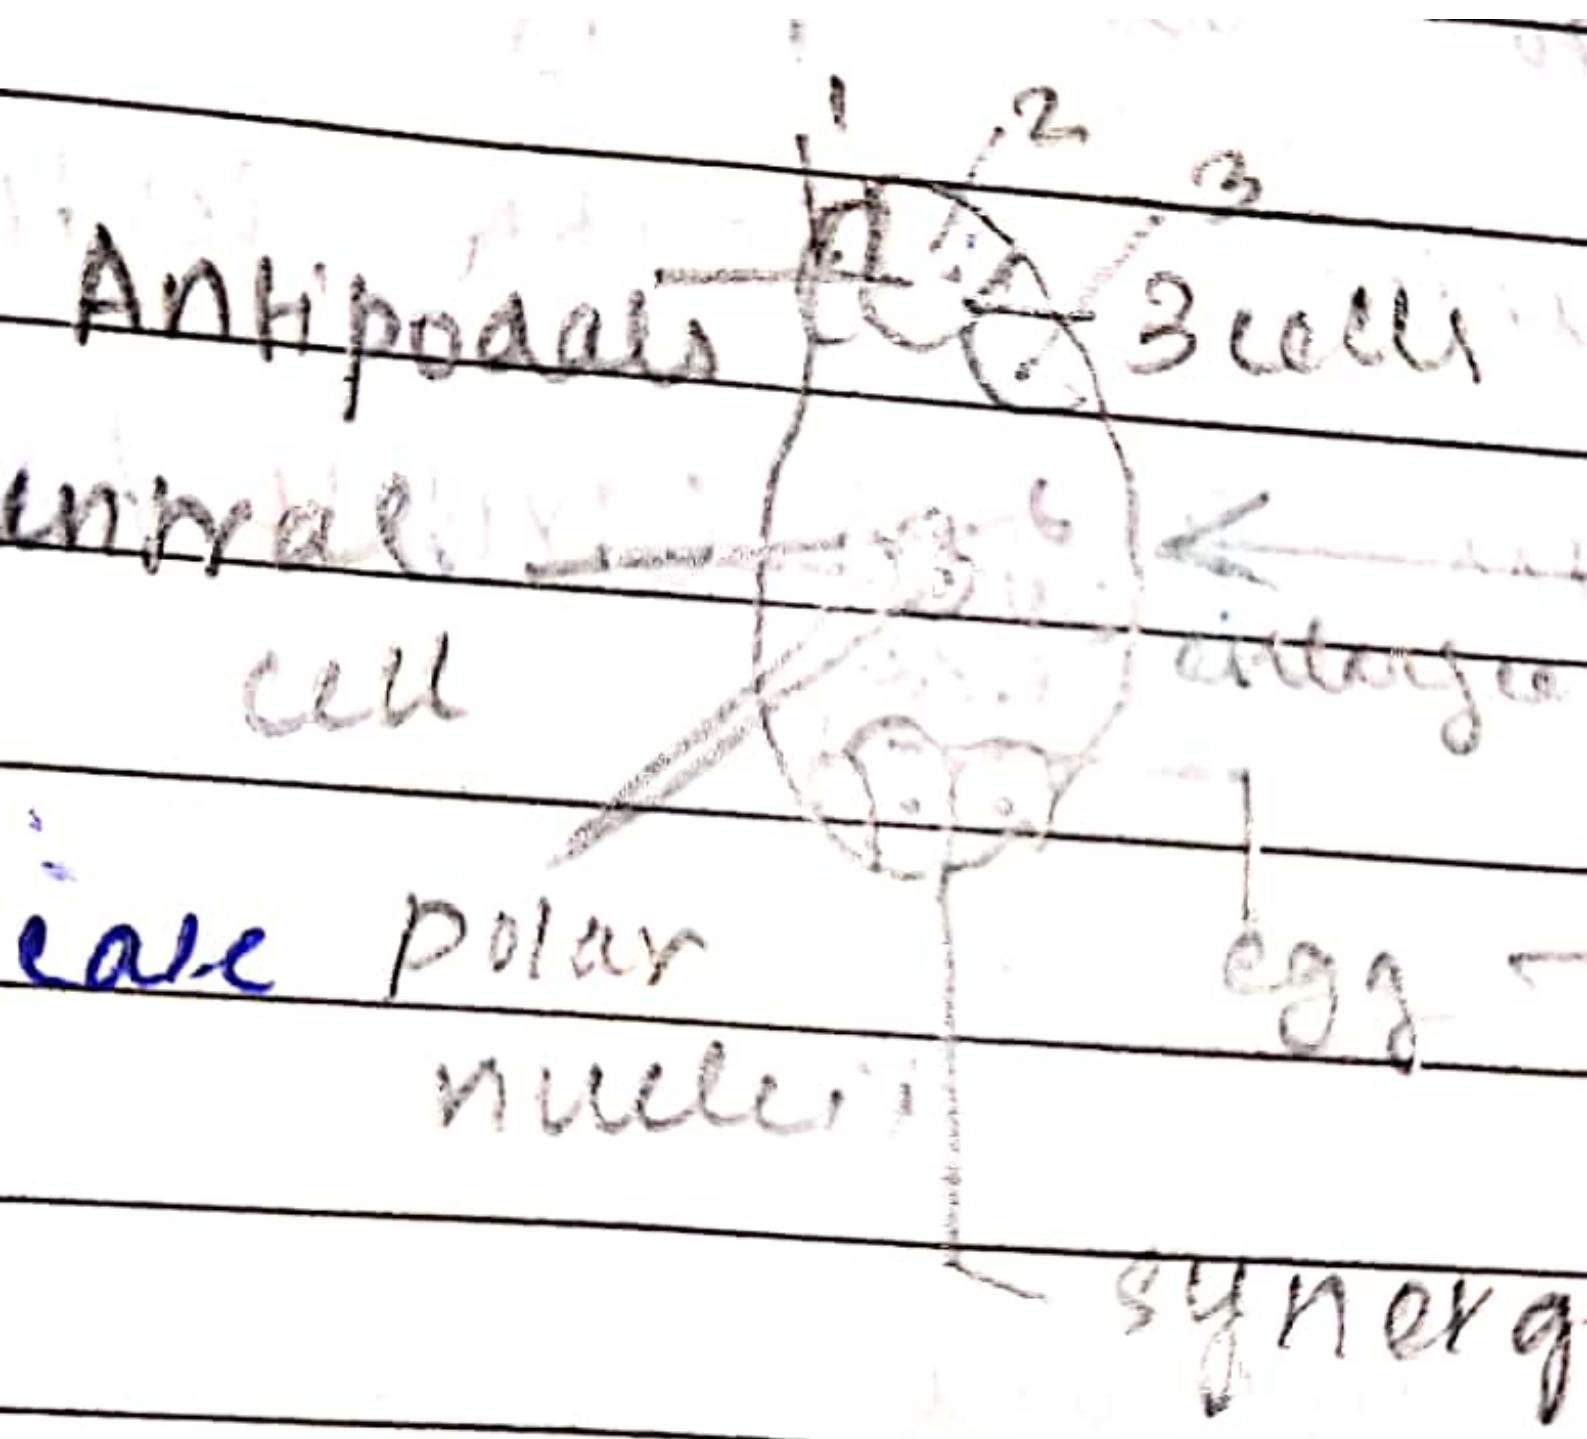 1
2
3
Antipodals
3 cells
entral
cell
enlarge
case polar
nuclei
egg -
synerg